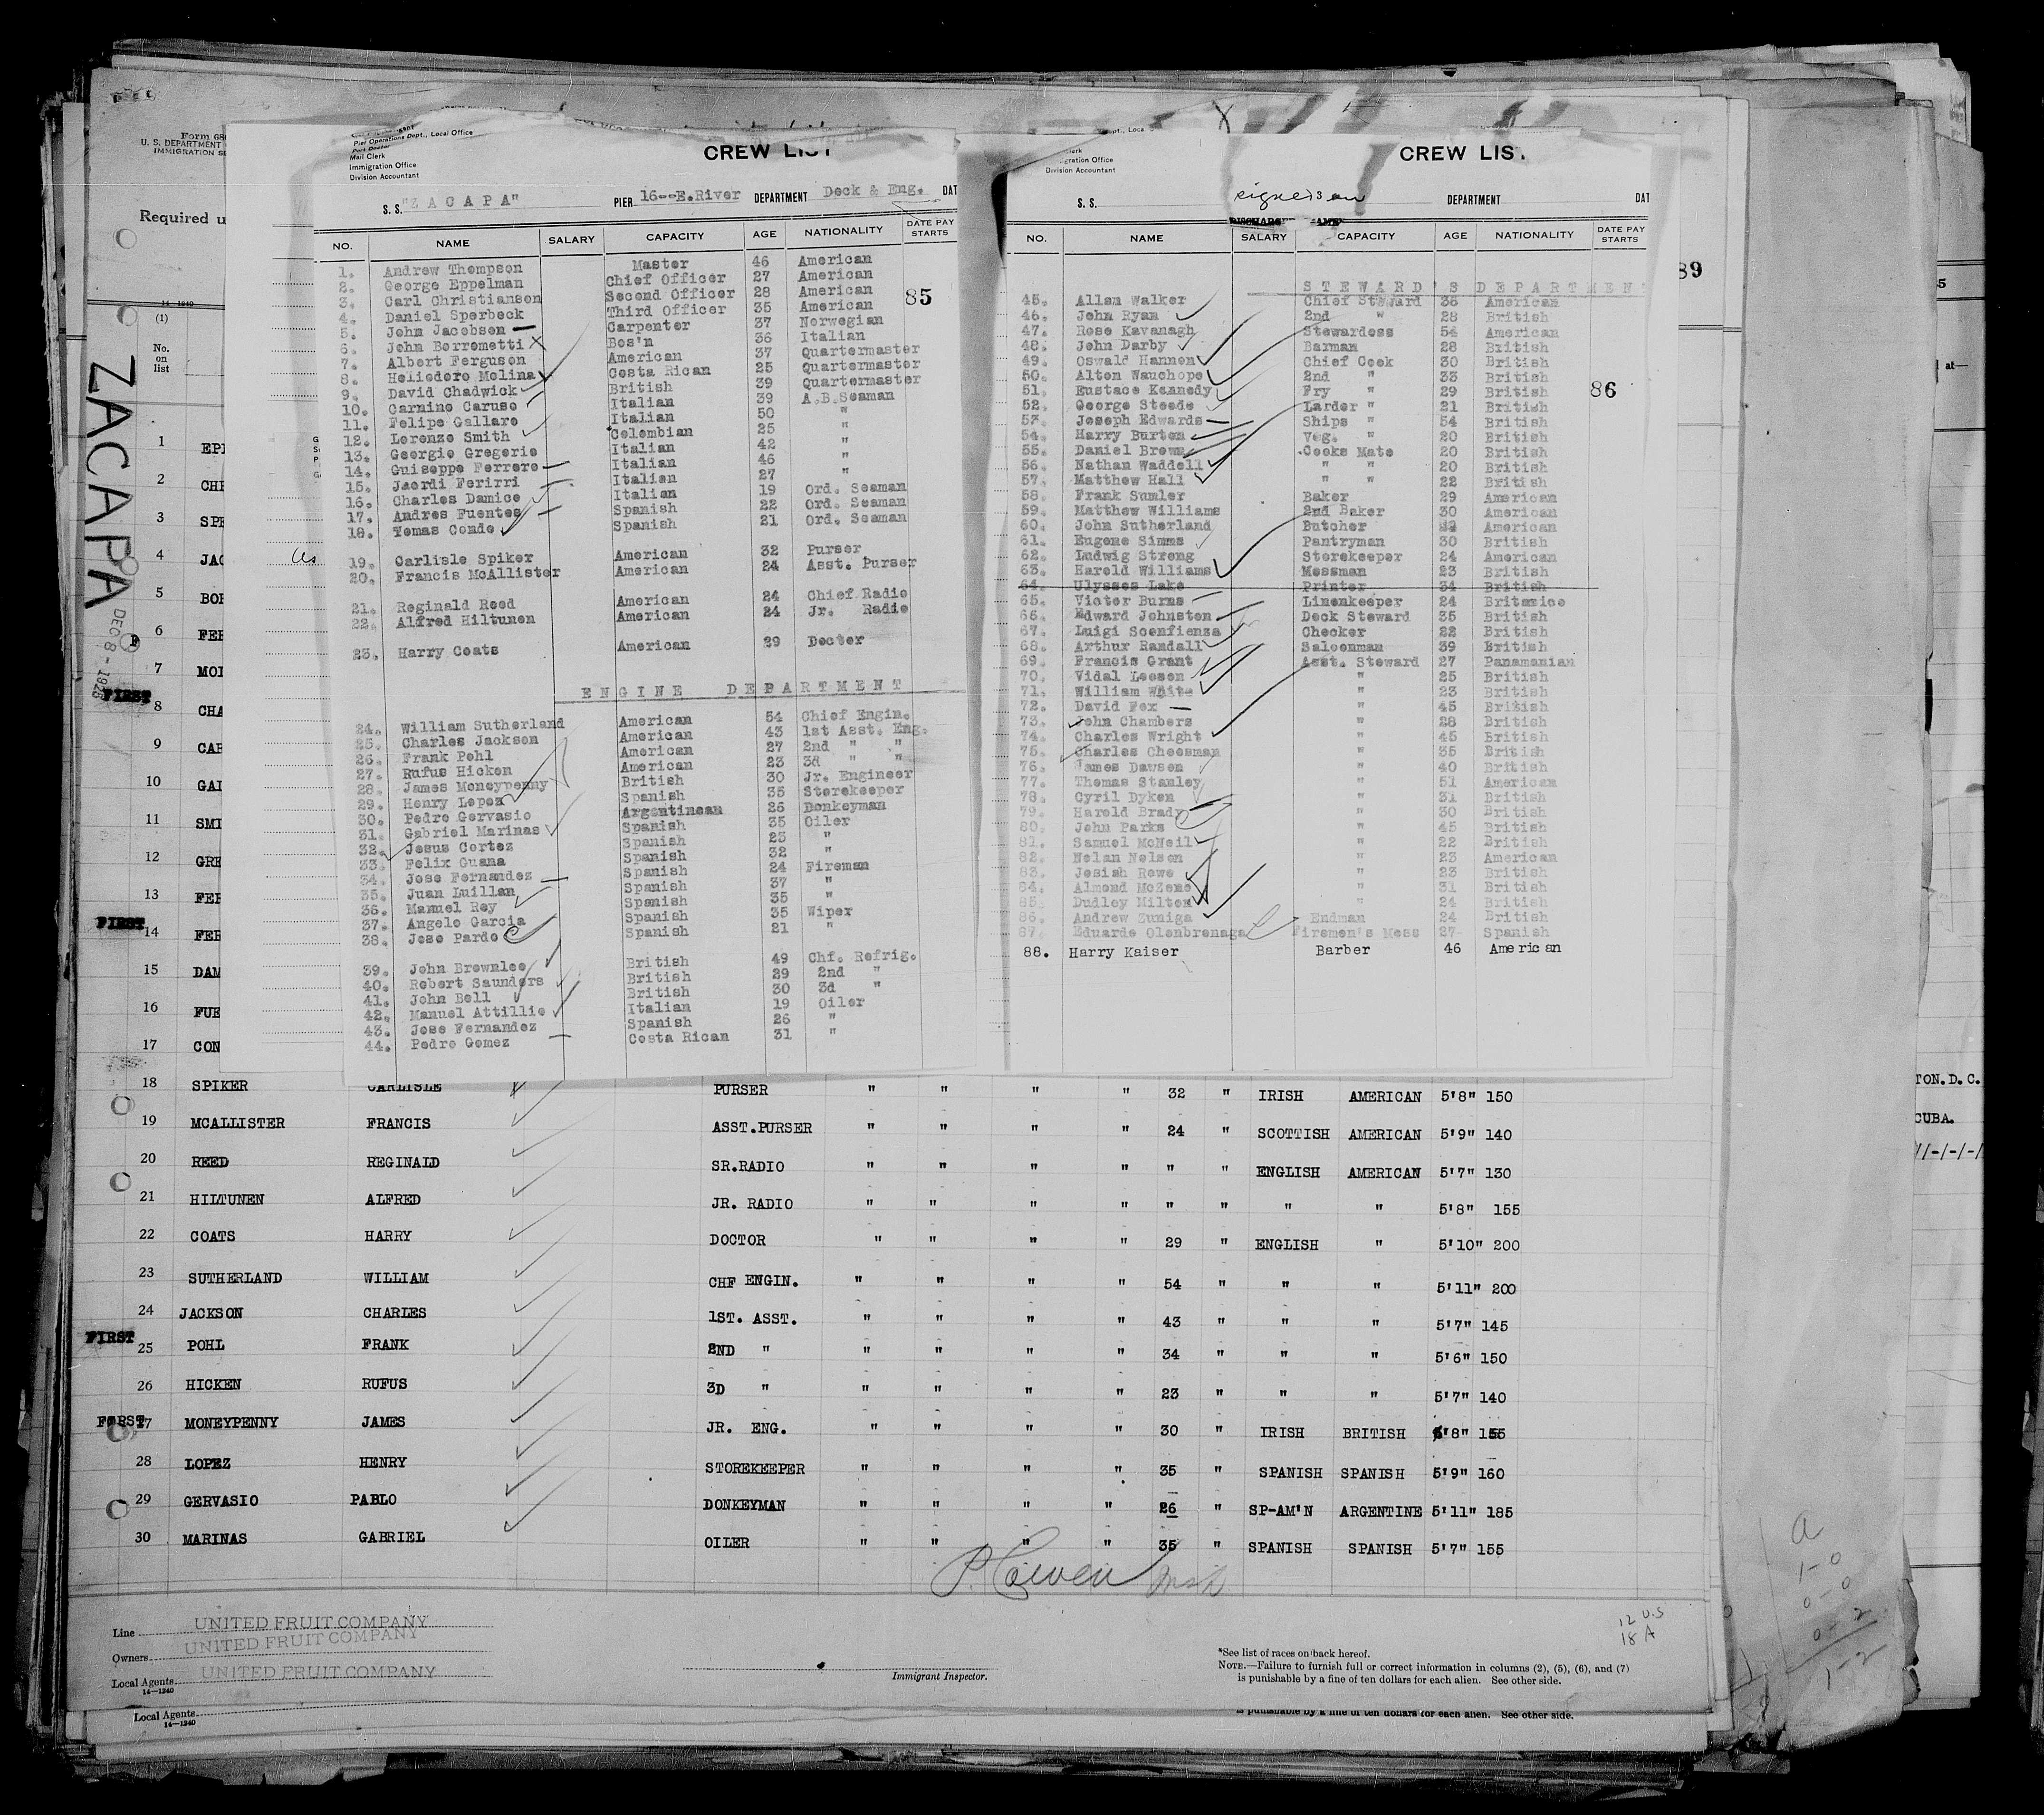 Form 680
U. S. DEPARTMENT
IMMIGRATION SE
Required u
14—1240
(1)
No.
on
list
ZACAPA
DEC 8 - 1925
Pier Operations Dept., Local Office
Port Doctor
Mail Clerk
Immigration Office
Division Accountant
CREW LIST
S. S. "ZACAPA" PIER 16--E.River DEPARTMENT Deck & Eng. DAT
NO. NAME SALARY CAPACITY AGE NATIONALITY DATE PAY STARTS
85
1. Andrew Thompson Master 46 American
2. George Eppelman Chief Officer 27 American
3. Carl Christianson Second Officer 28 American
4. Daniel Sperbeck Third Officer 35 American
5. John Jacobson Carpenter 37 Norwegian
6. John Borrometti Bos'n 36 Italian
7. Albert Ferguson American 37 Quartermaster
8. Heliodoro Molina Costa Rican 25 Quartermaster
9. David Chadwick British 39 Quartermaster
10. Carnino Caruso Italian 39 A.B.Seaman
11. Felipe Gallaro Italian 50 "
12. Lorenzo Smith Colombian 25 "
13. Georgio Gregorio Italian 42 "
14. Guiseppe Ferrero Italian 46 "
15. Jaordi Ferirri Italian 27 "
16. Charles Damico Italian 19 Ord. Seaman
17. Andres Fuentes Spanish 22 Ord. Seaman
18. Tomas Conde Spanish 21 Ord. Seaman
19. Carlisle Spiker American 32 Purser
20. Francis McAllister American 24 Asst. Purser
21. Reginald Reed American 24 Chief Radio
22. Alfred Hiltunen American 24 Jr. Radio
23. Harry Coats American 29 Doctor
ENGINE DEPARTMENT
24. William Sutherland American 54 Chief Engin.
25. Charles Jackson American 43 1st Asst. Eng.
26. Frank Pohl American 27 2nd " "
27. Rufus Hicken American 23 3d " "
28. James Moneypenny British 30 Jr. Engineer
29. Henry Lopez Spanish 35 Storekeeper
30. Pedro Gervasio Argentinean 26 Donkeyman
31. Gabriel Marinas Spanish 35 Oiler
32. Jesus Cortez Spanish 23 "
33. Felix Guana Spanish 32 "
34. Jose Fernandez Spanish 24 Fireman
35. Juan Luillan Spanish 37 "
36. Manuel Rey Spanish 35 "
37. Angelo Garcia Spanish 35 Wiper
38. Jose Pardo Spanish 21 "
39. John Brownlee British 49 Chf. Refrig.
40. Robert Saunders British 29 2nd "
41. John Bell British 30 3d "
42. Manuel Attillio Italian 19 Oiler
43. Jose Fernandez Spanish 26 "
44. Pedro Gomez Costa Rican 31 "
Immigration Office
Division Accountant
CREW LIST
S. S. signed on DEPARTMENT DAT
NO. NAME SALARY CAPACITY AGE NATIONALITY DATE PAY STARTS
89
86
STEWARD'S DEPARTMENT
45. Allan Walker Chief Steward 36 American
46. John Ryan 2nd " 28 British
47. Rose Kavanagh Stewardess 54 American
48. John Darby Barman 28 British
49. Oswald Hannon Chief Cook 30 British
50. Alton Wauchope 2nd " 33 British
51. Eustace Kennedy Fry " 29 British
52. George Steede Larder " 21 British
53. Joseph Edwards Ships " 54 British
54. Harry Burton Veg. " 20 British
55. Daniel Brown Cooks Mate 20 British
56. Nathan Waddell " " 20 British
57. Matthew Hall " " 22 British
58. Frank Sumler Baker 29 American
59. Matthew Williams 2nd Baker 30 American
60. John Sutherland Butcher American
61. Eugene Simms Pantryman 30 British
62. Ludwig Streng Storekeeper 24 American
63. Harold Williams Messman 23 British
64. Ulysses Lake Printer 34 British
65. Victor Burns Linenkeeper 24
66. Edward Johnston Deck Steward 35 British
67. Luigi Sconfienza Checker 22 British
68. Arthur Randall Saloonman 39 British
69. Francis Grant Asst. Steward 27 Panamanian
70. Vidal Leeson " 25 British
71. William White " 23 British
72. David Fox " 45 British
73. John Chambers " 28 British
74. Charles Wright " 45 British
75. Charles Cheesman " 35 British
76. James Dawson " 40 British
77. Thomas Stanley " 51 American
78. Cyril Dyken " 31 British
79. Harold Brady " 30 British
80. John Parks " 45 British
81. Samuel McNeil " 22 British
82. Nolan Nelson " 23 American
83. Josiah Rowe " 23 British
84. Almond McZene " 31 British
85. Dudley Milton " 24 British
86. Andrew Zuniga Endman 24 British
87. Eduardo Olenbrenaga Firemen's Mess 27 Spanish
88. Harry Kaiser Barber 46 American
1 EPI
2 CHR
3 SPE
4 JAC
5 BOR
6 FER
7 MOL
FIRST
8 CHA
9 CAR
10 GAL
11 SMI
12 GRE
13 FER
FIRST
14 FER
15 DAM
16 FUE
17 CON
18 SPIKER CARLISLE PURSER " " " " 32 " IRISH AMERICAN 5'8" 150
19 MCALLISTER FRANCIS ASST.PURSER " " " " 24 " SCOTTISH AMERICAN 5'9" 140
20 REED REGINALD SR.RADIO " " " " " " ENGLISH AMERICAN 5'7" 130
21 HILTUNEN ALFRED JR. RADIO " " " " " " " " 5'8" 155
22 COATS HARRY DOCTOR " " " " 29 " ENGLISH " 5'10" 200
23 SUTHERLAND WILLIAM CHF ENGIN. " " " " 54 " " " 5'11" 200
24 JACKSON CHARLES 1ST. ASST. " " " " 43 " " " 5'7" 145
FIRST
25 POHL FRANK 2ND " " " " " 34 " " " 5'6" 150
26 HICKEN RUFUS 3D " " " " " 23 " " " 5'7" 140
FIRST 27 MONEYPENNY JAMES JR. ENG. " " " " 30 " IRISH BRITISH 5'8" 155
28 LOPEZ HENRY STOREKEEPER " " " " 35 " SPANISH SPANISH 5'9" 160
29 GERVASIO PABLO DONKEYMAN " " " " 26 " SP-AM'N ARGENTINE 5'11" 185
30 MARINAS GABRIEL OILER " " " " 35 " SPANISH SPANISH 5'7" 155
TON. D. C.
CUBA.
Line UNITED FRUIT COMPANY
Owners UNITED FRUIT COMPANY
Local Agents UNITED FRUIT COMPANY
14—1240
Immigrant Inspector.
*See list of races on back hereof.
NOTE.—Failure to furnish full or correct information in columns (2), (5), (6), and (7)
is punishable by a fine of ten dollars for each alien. See other side.
12 U.S
18 A
Local Agents
14—1240
is punishable by a fine of ten dollars for each alien. See other side.
a
1-0
0-0
0-2
1-2